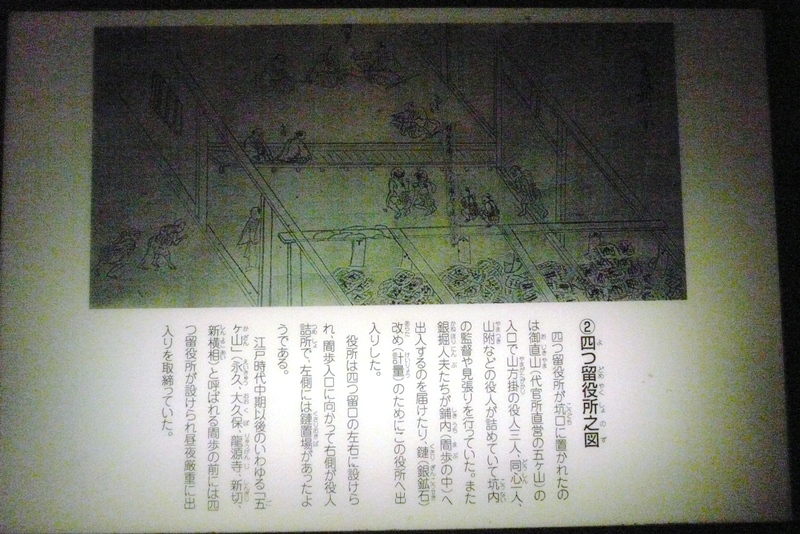 ②四つ留役所之図
四つ留役所が坑口に置かれたの
は御直山（代官所直営の五ヶ山）の
入口で山方掛の役人三人、同心一人、
山附などの役人が詰めていて坑内
の監督や見張りを行っていた。また
銀掘人夫たちが鋪内（間歩の中）へ
出入するのを届けたり、鏈（銀鉱石）
改め（計量）のためにこの役所へ出
入りした。
役所は四つ留口の左右に設けら
れ、間歩入口に向かって右側が役人
詰所で、左側には鏈置場があったよ
うである。
江戸時代中期以後のいわゆる「五
ヶ山」（永久、大久保、龍源寺、新切、
新横相）と呼ばれる間歩の前には四
つ留役所が設けられ昼夜厳重に出
入りを取締っていた。